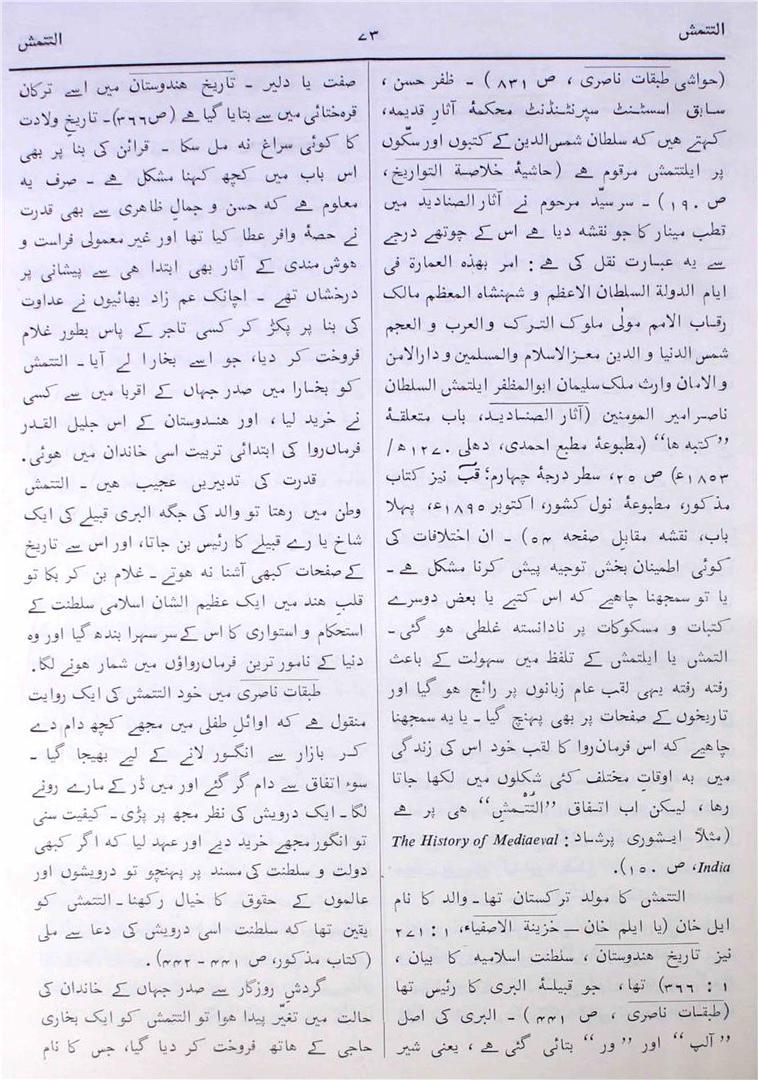 التتمش
۷۳
التتمش
(حواشی طبقات ناصری ، ص ۸۳۱) - ظفر حسن ،
سابق اسسٹنٹ سپرنٹنڈنٹ محکمۂ آثار قدیمہ،
کہتے ھیں کہ سلطان شمس الدین کے کتبوں اور سکّوں
پر ایلتتمش مرقوم ھے (حاشیۂ خلاصة التواریخ ،
ص ۱۹۰) - سر سیّد مرحوم نے آثار الصنادید میں
قطب مینار کا جو نقشہ دیا ھے اس کے چوتھے درجے
سے یہ عبارت نقل کی ھے : امر بھذہ العمارة فی
ایام الدولة السلطان الاعظم و شہنشاہ المعظم مالک
رقاب الامم مولٰی ملوک الترک والعرب و العجم
شمس الدنیا و الدین معز الاسلام والمسلمین و دار الامن
و الامان وارث ملک سلیمان ابوالمظفر ایلتمش السلطان
ناصر امیر المومنین (آثار الصنادید، باب متعلقۂ
”کتبہ ھا“ (مطبوعۂ مطبع احمدی، دھلی ۱۲۷۰ھ /
۱۸۵۳ء) ص ۲۵، سطر درجۂ چہارم؛ قب نیز کتاب
مذکور، مطبوعۂ نول کشور، اکتوبر ۱۸۹۵ء، پہلا
باب، نقشہ مقابل صفحہ ۵۴) - ان اختلافات کی
کوئی اطمینان بخش توجیہ پیش کرنا مشکل ھے -
یا تو سمجھنا چاھیے کہ اس کتبے یا بعض دوسرے
کتبات و مسکوکات پر نادانستہ غلطی ھو گئی -
التمش یا ایلتمش کے تلفظ میں سہولت کے باعث
رفتہ رفتہ یہی لقب عام زبانوں پر رائج ھو گیا اور
تاریخوں کے صفحات پر بھی پہنچ گیا - یا یہ سمجھنا
چاھیے کہ اس فرمان روا کا لقب خود اس کی زندگی
میں بہ اوقات مختلف کئی شکلوں میں لکھا جاتا
رھا ، لیکن اب اتفاق ”التتمش“ ھی پر ھے
(مثلاً ایشوری پرشاد : The History of Mediaeval
India، ص ۱۵۰).
التتمش کا مولد ترکستان تھا - والد کا نام
ایل خان (یا ایلم خان — خزینة الاصفیاء، ۱ : ۲۷۱
نیز تاریخ ھندوستان ، سلطنت اسلامیہ کا بیان ،
۱ : ۳۶۶) تھا ، جو قبیلۂ البری کا رئیس تھا
(طبقات ناصری ، ص ۴۴۱) - البری کی اصل
”آلپ“ اور ”ور“ بتائی گئی ھے ، یعنی شیر
صفت یا دلیر - تاریخ ھندوستان میں اسے ترکان
قرہ ختائی میں سے بتایا گیا ھے (ص ۳۶۶) - تاریخ ولادت
کا کوئی سراغ نہ مل سکا - قرائن کی بنا پر بھی
اس باب میں کچھ کہنا مشکل ھے - صرف یہ
معلوم ھے کہ حسن و جمال ظاھری سے بھی قدرت
نے حصۂ وافر عطا کیا تھا اور غیر معمولی فراست و
ھوش مندی کے آثار بھی ابتدا ھی سے پیشانی پر
درخشاں تھے - اچانک عم زاد بھائیوں نے عداوت
کی بنا پر پکڑ کر کسی تاجر کے پاس بطور غلام
فروخت کر دیا، جو اسے بخارا لے آیا - التتمش
کو بخارا میں صدر جہاں کے اقربا میں سے کسی
نے خرید لیا ، اور ھندوستان کے اس جلیل القدر
فرماں روا کی ابتدائی تربیت اسی خاندان میں ھوئی.
قدرت کی تدبیریں عجیب ھیں - التتمش
وطن میں رھتا تو والد کی جگہ البری قبیلے کی ایک
شاخ یا رے قبیلے کا رئیس بن جاتا، اور اس سے تاریخ
کے صفحات کبھی آشنا نہ ھوتے - غلام بن کر بکا تو
قلب ھند میں ایک عظیم الشان اسلامی سلطنت کے
استحکام و استواری کا اس کے سر سہرا بندھ گیا اور وہ
دنیا کے نامور ترین فرماں رواؤں میں شمار ھونے لگا.
طبقات ناصری میں خود التتمش کی ایک روایت
منقول ھے کہ اوائل طفلی میں مجھے کچھ دام دے
کر بازار سے انگور لانے کے لیے بھیجا گیا -
سوء اتفاق سے دام گر گئے اور میں ڈر کے مارے رونے
لگا - ایک درویش کی نظر مجھ پر پڑی - کیفیت سنی
تو انگور مجھے خرید دیے اور عہد لیا کہ اگر کبھی
دولت و سلطنت کی مسند پر پہنچو تو درویشوں اور
عالموں کے حقوق کا خیال رکھنا - التتمش کو
یقین تھا کہ سلطنت اسی درویش کی دعا سے ملی
(کتاب مذکور، ص ۴۴۱ - ۴۴۲).
گردش روزگار سے صدر جہاں کے خاندان کی
حالت میں تغیّر پیدا ھوا تو التتمش کو ایک بخاری
حاجی کے ھاتھ فروخت کر دیا گیا، جس کا نام